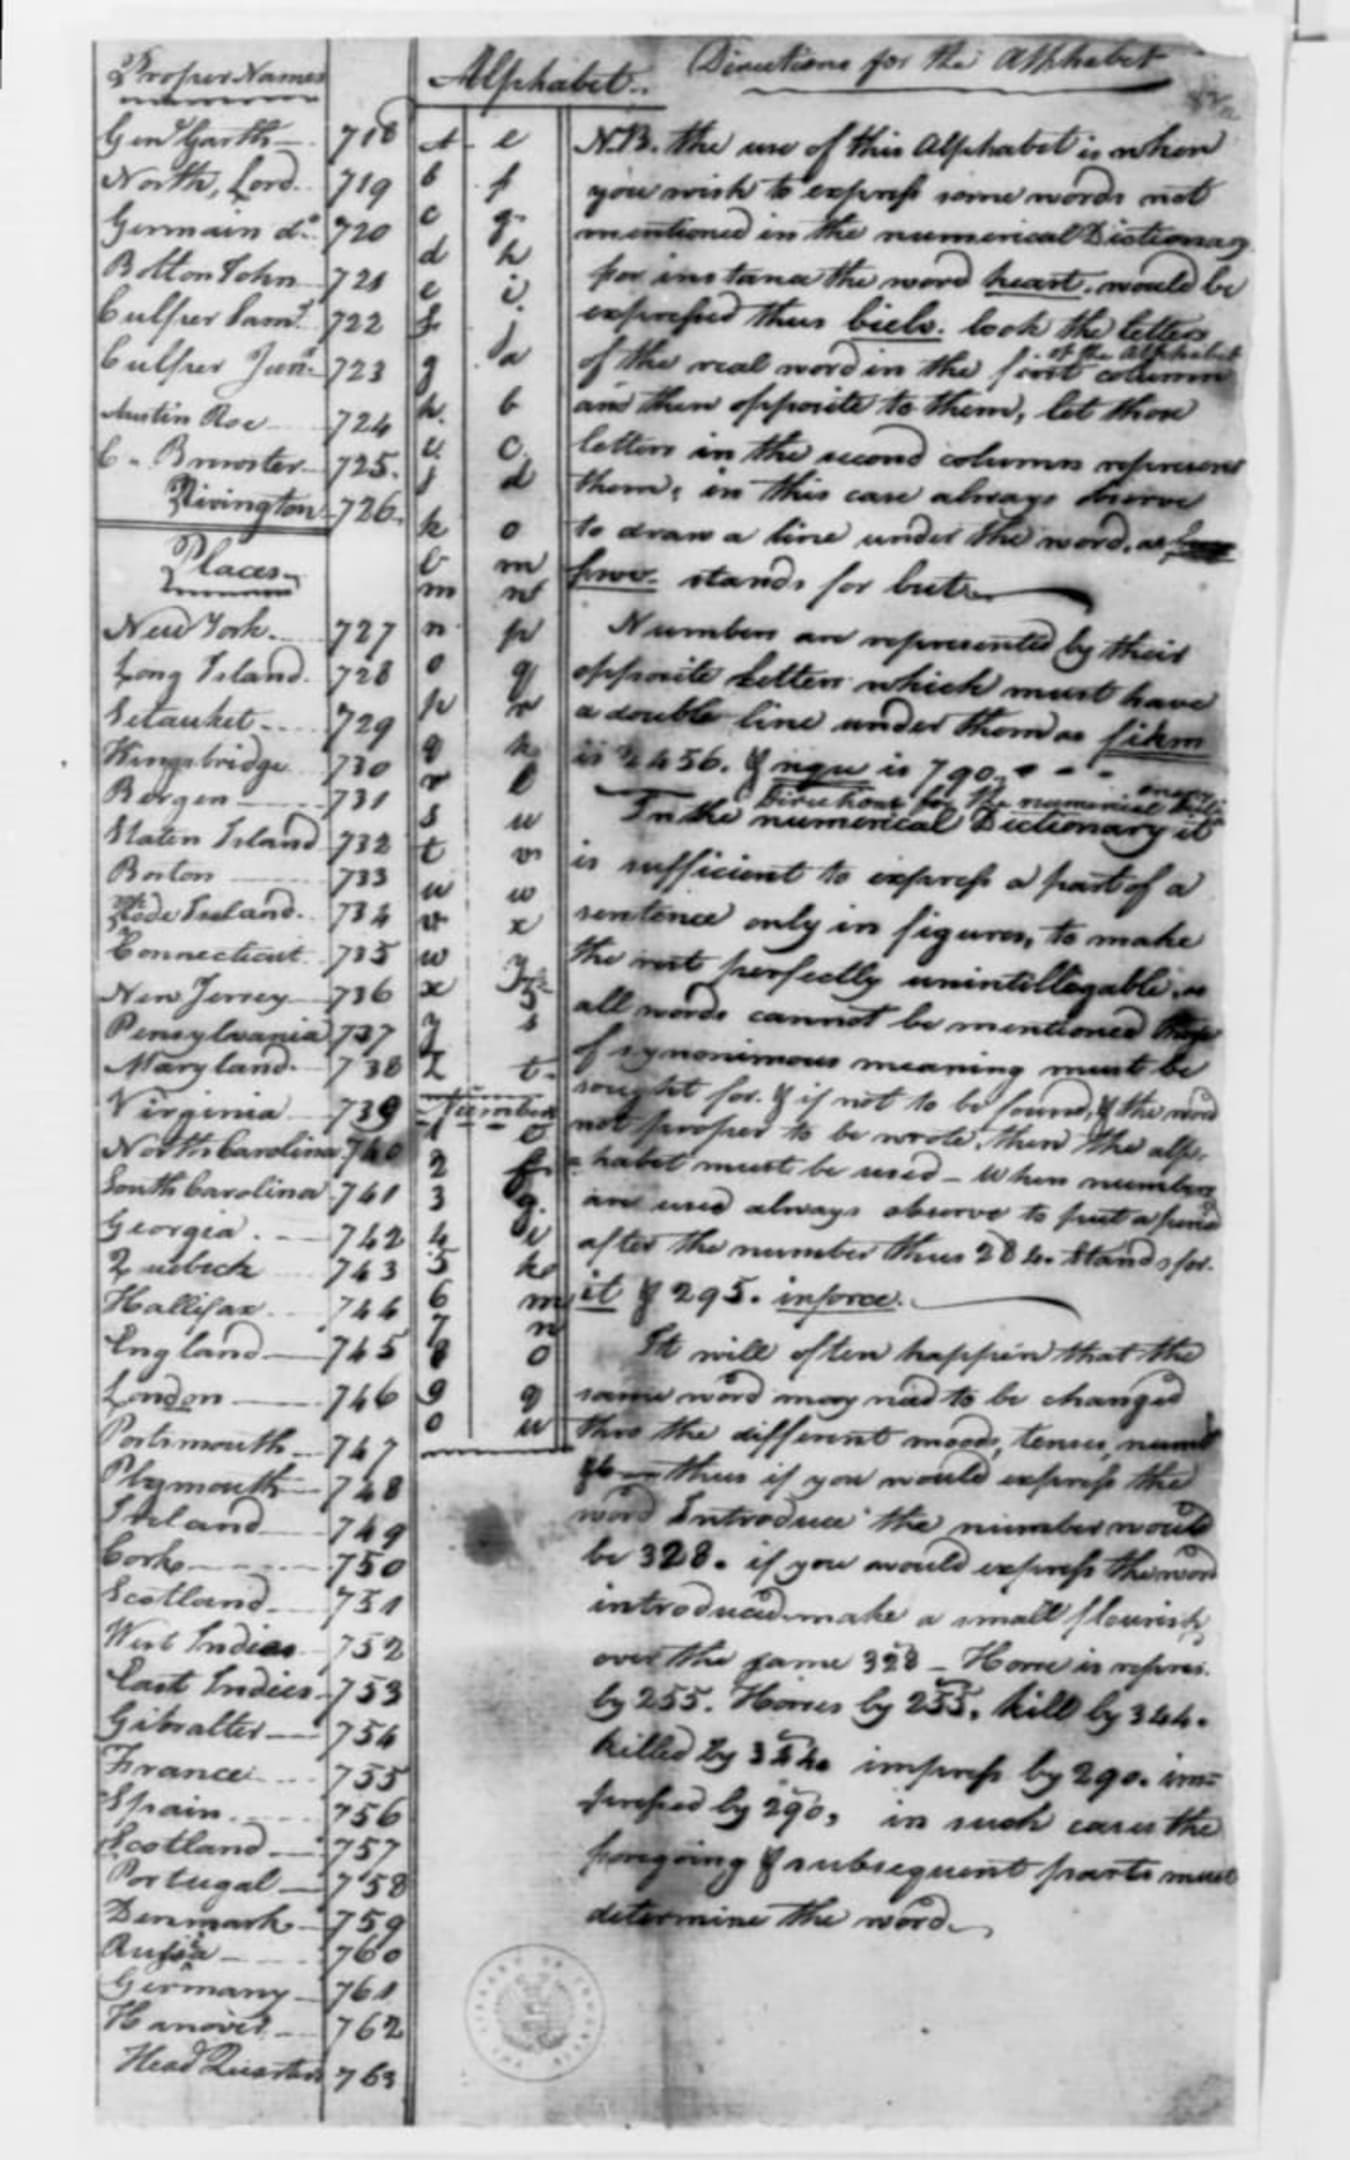 Proper Names
Gen.l Garth 718
North, Lord 719
Germain do. 720
Bolton John 721
Culper Saml. 722
Culper Junr. 723
Austin Roe 724
C. Brewster 725.
Rivington 726.
Places
New York. 727
Long Island. 728
Setauket 729
Kingsbridge 730
Bergen 731
Staten Island 732
Boston 733
Rhode Island. 734
Connecticut 735
New Jersey 736
Pensylvania 737
Maryland. 738
Virginia 739
North Carolina 740
South Carolina 741
Georgia. 742
Quebeck 743
Hallifax 744
England 745
London 746
Portsmouth 747
Plymouth 748
Ireland 749
Cork 750
Scotland 751
West Indies 752
East Indies 753
Gibralter 754
France 755
Spain. 756
Scotland 757
Portugal 758
Denmark 759
Russia 760
Germany 761
Hanover 762
Head Quarters 763
Alphabet.
a e
b f
c g
d h
e i
f j
g a
h b
i c
j d
k o
l m
m n
n p
o q
p r
q k
r l
s u
t v
u w
v x
w y
x z
y s
z t
Numbers
1 e
2 f
3 g
4 i
5 k
6 m
7 n
8 o
9 q
0 u
Directions for the Alphabet
N.B. the use of this Alphabet is when
you wish to express some words not
mentioned in the numerical Dictionary
for instance the word heart. would be
expressed thus biels. look the letters
of the real word in the first column
of the alphabet
and then opposite to them, let those
letters in the second column represent
them, in this case always observe
to draw a line under the word, as
fwv. stands for but
Numbers are represented by their
opposite letters which must have
a double line under them as fikm
is 2456. & nqu is 790.
Directions for the numerical
In the numerical Dictionary it
is sufficient to express a part of a
sentence only in figures, to make
the rest perfectly unintellegable, as
all words cannot be mentioned those
of synonimous meaning must be
sought for. & if not to be found, & the word
not proper to be wrote, then the alp-
habet must be used – When numbers
are used always observe to put a period
after the number thus 284. stands for
it & 295. inforce.
It will often happen that the
same word may need to be changed
thro the different moods, tenses, numb
thus if you would express the
word Introduce the number would
be 328. if you would express the word
introduced make a small flourish
over the same 328 – Horse is repres.
by 255. Horses by 255, kill by 344.
killed by 344. impress by 290. im-
pressed by 290, in such cases the
foregoing & subsequent parts must
determine the word.